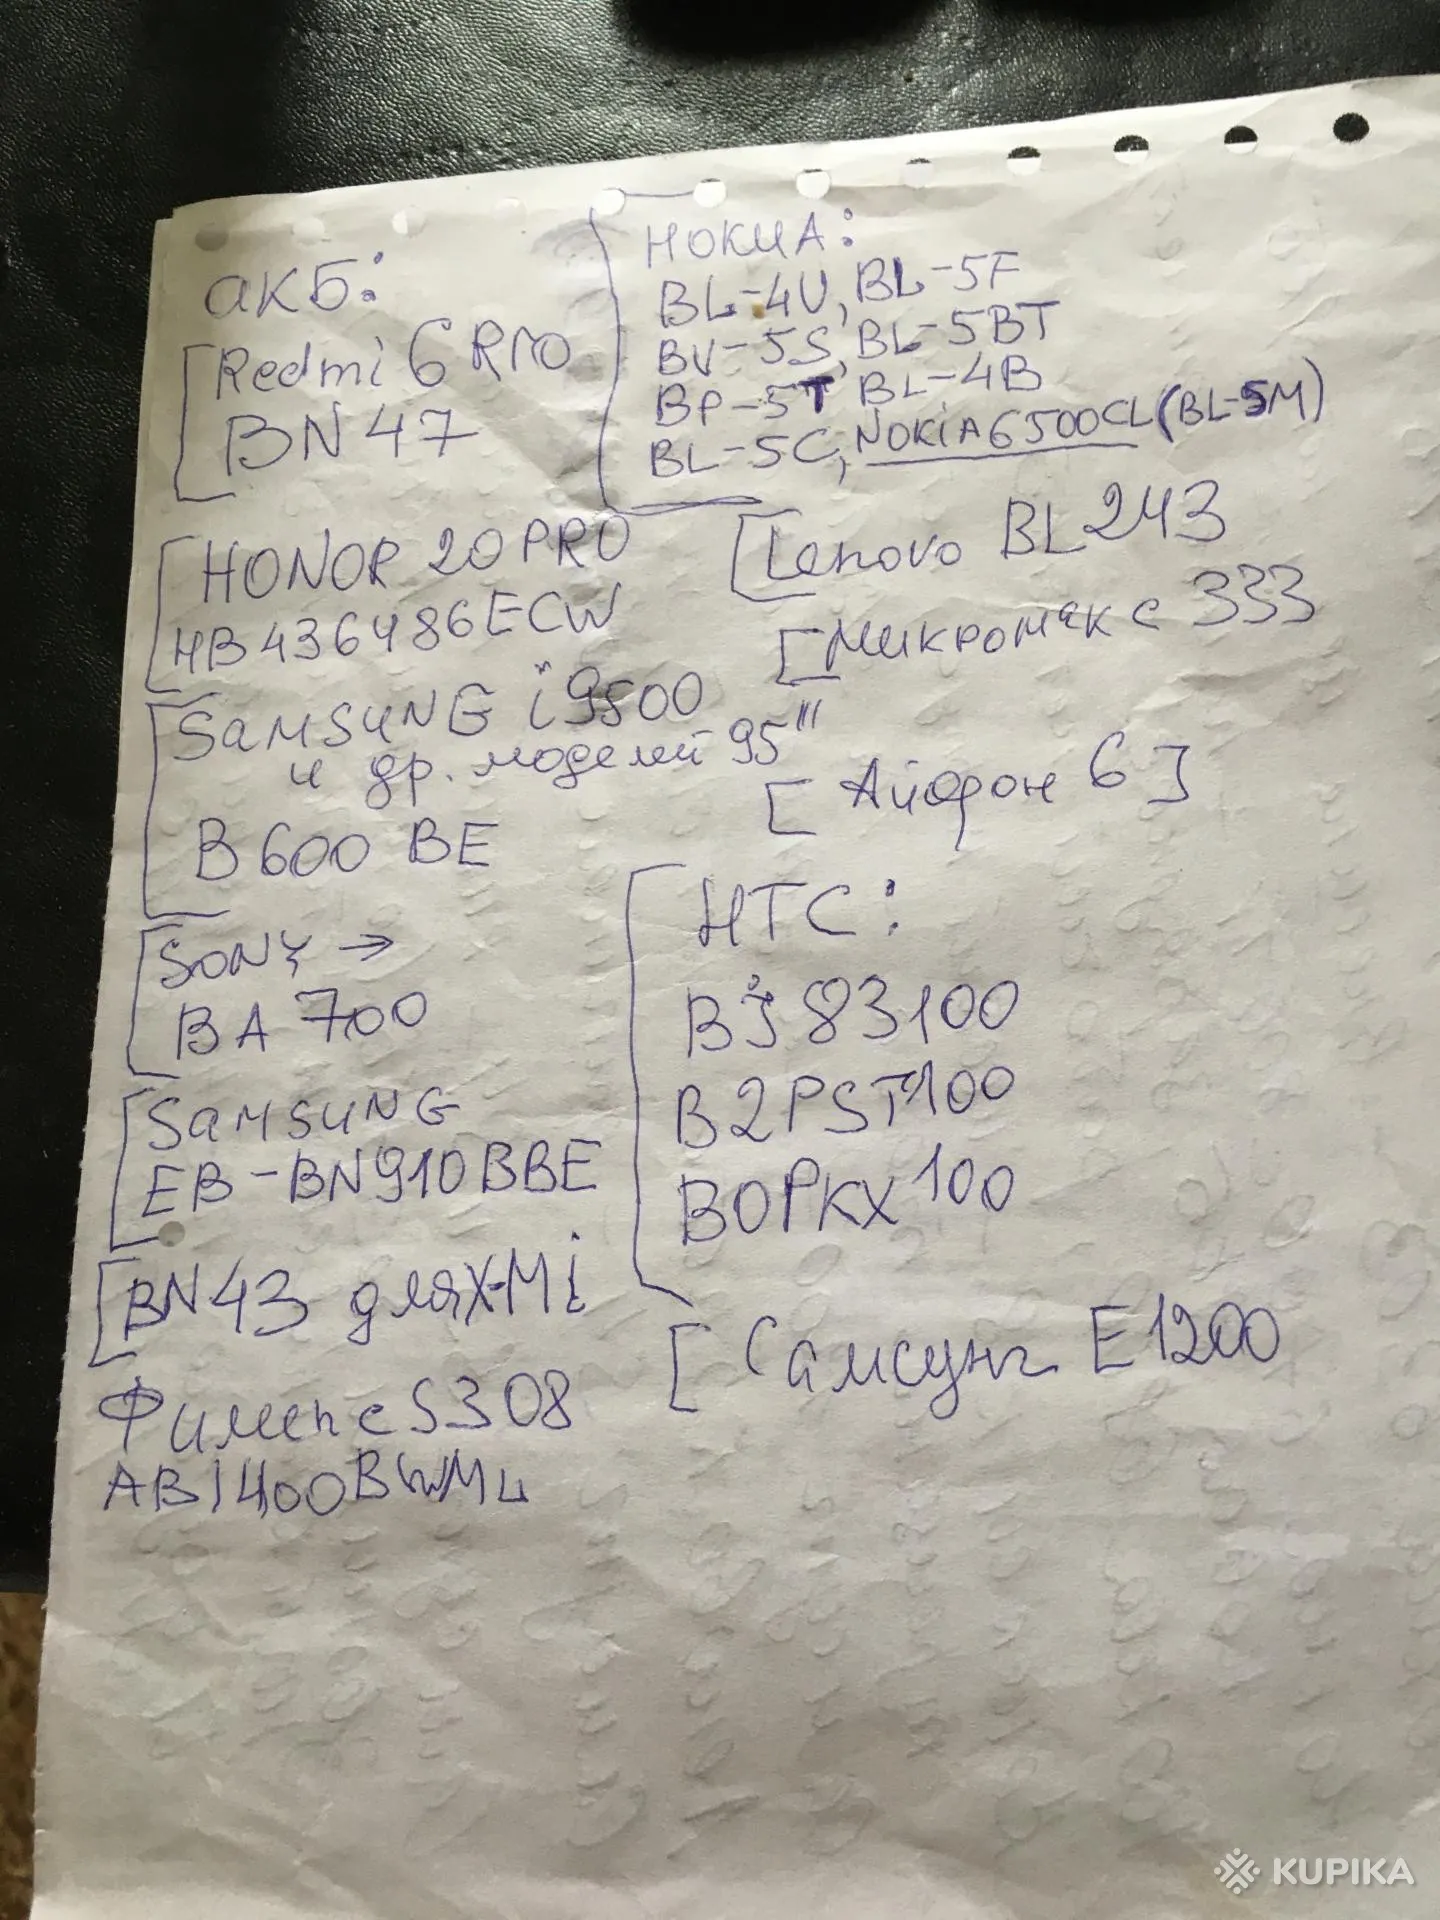 АКБ:
Redmi 6 PRO
BN 47
HONOR 20 PRO
HB436486ECW
SAMSUNG i9500
и др. моделей 95'''
B600 BE
SONY →
BA 700
SAMSUNG
EB-BN910BBE
BN43 для X-Mi
Филипс S308
AB1400BWML
НОКИА:
BL-4U, BL-5F
BV-5S, BL-5BT
BP-5T BL-4B
BL-5C, NOKIA6500CL (BL-5M)
Lenovo BL243
Микромакс 333
[Айфон 6]
HTC:
BJ83100
B2PST100
BOPKX100
Самсунг E1200
KUPIKA